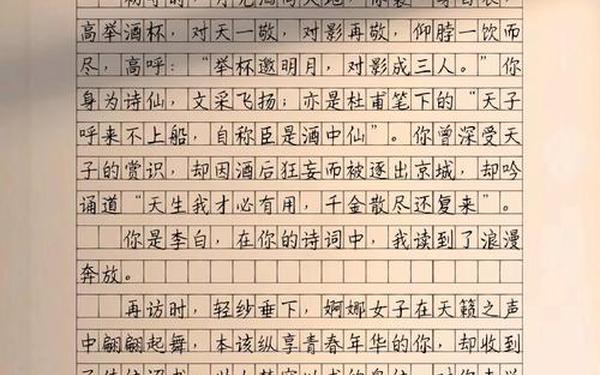 高举酒杯，对天一敬，对影再敬，仰脖一饮而
尽，高呼：“举杯邀明月，对影成三人。”你
身为诗仙，文采飞扬；亦是杜甫笔下的“天子
呼来不上船，自称臣是酒中仙”。你曾深受天
子的赏识，却因酒后狂妄而被逐出京城，却吟
诵道“天生我才必有用，千金散尽还复来”。
你是李白，在你的诗词中，我读到了浪漫
奔放。
再访时，轻纱垂下，婀娜女子在天籁之声
中翩翩起舞，本该纵享青春年华的你，却收到